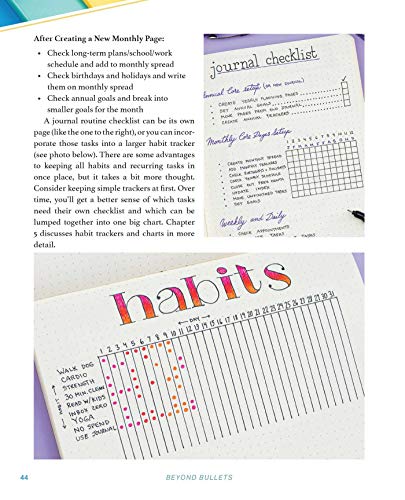 After Creating a New Monthly Page:
• Check long-term plans/school/work
schedule and add to monthly spread
• Check birthdays and holidays and write
them on monthly spread
• Check annual goals and break into
smaller goals for the month
A journal routine checklist can be its own
page (like the one to the right), or you can incor-
porate those tasks into a larger habit tracker
(see photo below). There are some advantages
to keeping all habits and recurring tasks in
once place, but it takes a bit more thought.
Consider keeping simple trackers at first. Over
time, you'll get a better sense of which tasks
need their own checklist and which can be
lumped together into one big chart. Chapter
5 discusses habit trackers and charts in more
detail.
journal checklist
Annual Core Setup (or new journal)
• CREATE YEARLY PLANNING PAGES
• SET ANNUAL GOALS
• MOVE PAGES FROM OLD JOURNAL
• CREATE ANNUAL TRACKERS
Monthly Core Pages Setup
1 2 3 4 5 6 7 8 9 10 11 12
J F M A M J J A S O N D
• CREATE MONTHLY SPREAD
• ADD MONTHLY TRACKERS
• CHECK BIRTHDAYS + HOLIDAYS
• CHECK YEARLY SCHEDULE
• CLOSE OUT PREV MONTH
• UPDATE INDEX
• MOVE UNFINISHED TASKS
• SET GOALS
Weekly and Daily
• CHECK APPOINTMENTS
TASKS
habits
DAY
1 2 3 4 5 6 7 8 9 10 11 12 13 14 15 16 17 18 19 20 21 22 23 24 25 26 27 28 29 30 31
HABIT
WALK DOG
CARDIO
STRENGTH
30 MIN. CLEAN
READ W/KIDS
INBOX ZERO
YOGA
NO SPEND
USE JOURNAL
44
BEYOND BULLETS